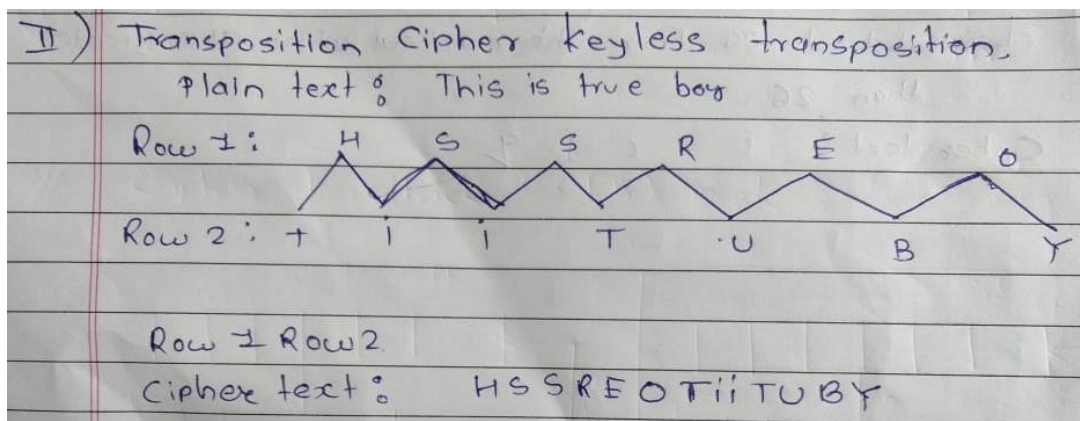 II) Transposition Cipher keyless transposition.
Plain text : This is true boy
Row 1 : H S S R E O
Row 2 : T i i T U B Y
Row 1 Row 2
Cipher text : H S S R E O T i i T U B Y